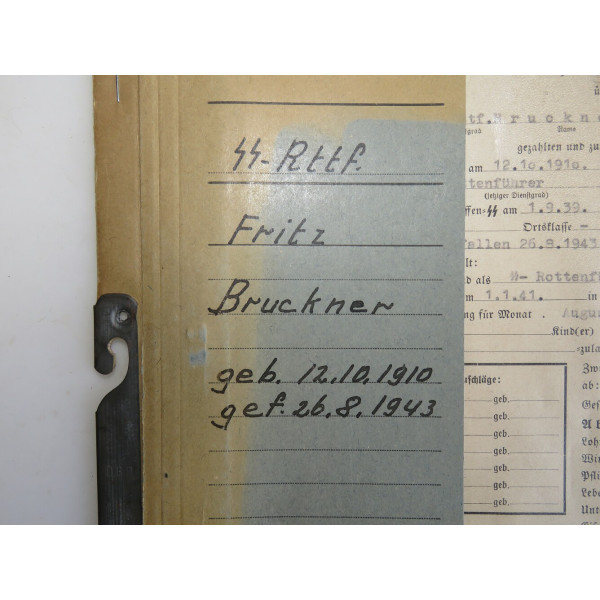 SS-Rttf.
Fritz
Bruckner
geb. 12.10.1910
gef. 26.8.1943
ü
tf. Bruckne
grad Name
gezahlten und zu
am 12.10.1910.
ttenführer
(jetziger Dienstgrad)
ffen-SS am 1.9.39.
Ortsklasse -
fallen 26.8.1943
lt:
d als SS- Rottenf
m 1.1.41. in
ng für Monat . Augu
Kind(er)
-zula
uschläge:
geb.
geb.
geb.
geb.
geb.
geb.
Zw
ab:
Ges
A B
Loh
Wir
Pfli
Lebe
Unt